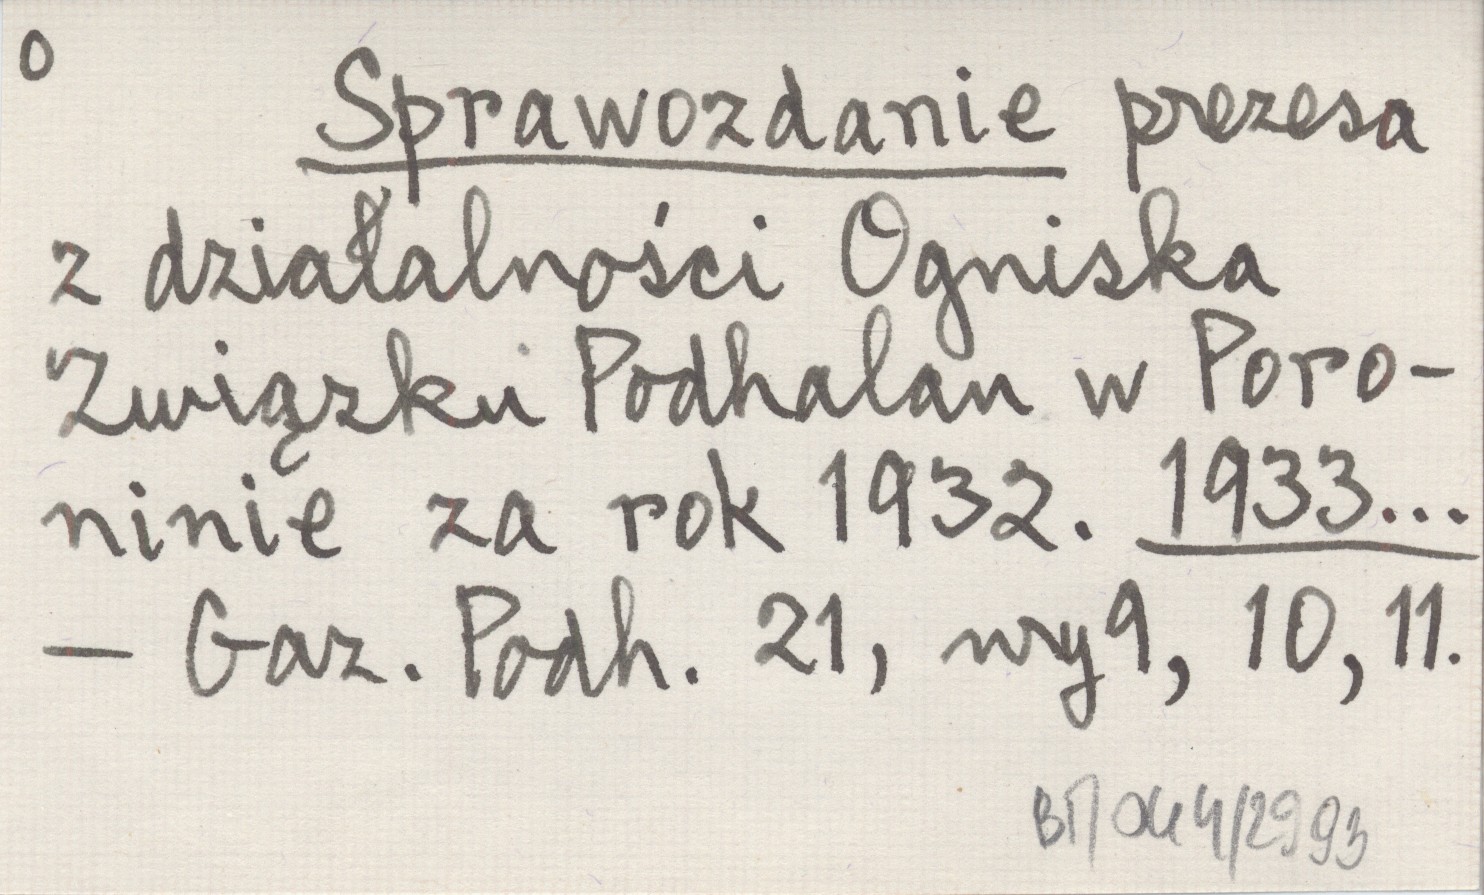 O
Sprawozdanie prezesa
z działalności Ogniska
Związku Podhalan w Poro-
ninie za rok 1932. 1933...
– Gaz. Podh. 21, nry 9, 10, 11.